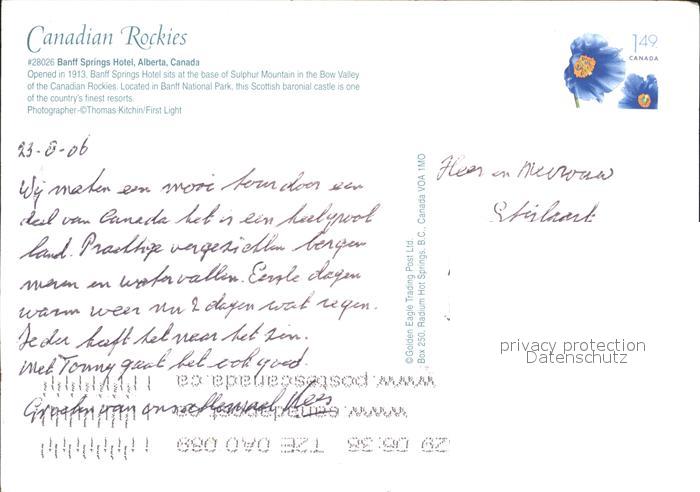 Canadian Rockies
#28026 Banff Springs Hotel, Alberta, Canada
Opened in 1913, Banff Springs Hotel sits at the base of Sulphur Mountain in the Bow Valley
of the Canadian Rockies. Located in Banff National Park, this Scottish baronial castle is one
of the country's finest resorts.
Photographer-©Thomas Kitchin/First Light
1.49
CANADA
23-8-06
Wij maken een mooi tour door een
deel van Canada het is een heel groot
land. Prachtige vergezichten bergen
meren en watervallen. Eerste dagen
warm weer nu 2 dagen wat regen.
Ieder heeft het naar het zin.
Met Tonny gaat het ook goed.
Groeten van ons allemaal Mees
©Golden Eagle Trading Post Ltd.
Box 250, Radium Hot Springs, B.C., Canada V0A 1M0
Heer en Mevrouw
privacy protection
Datenschutz
www.postescanada.ca
29 06 38 T2E 0A0 089